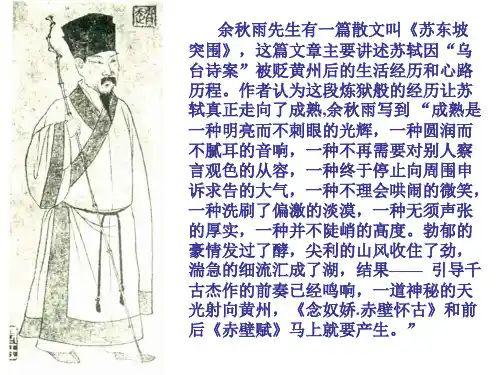 余秋雨先生有一篇散文叫《苏东坡
突围》，这篇文章主要讲述苏轼因“乌
台诗案”被贬黄州后的生活经历和心路
历程。作者认为这段炼狱般的经历让苏
轼真正走向了成熟,余秋雨写到 “成熟是
一种明亮而不刺眼的光辉，一种圆润而
不腻耳的音响，一种不再需要对别人察
言观色的从容，一种终于停止向周围申
诉求告的大气，一种不理会哄闹的微笑，
一种洗刷了偏激的淡漠，一种无须声张
的厚实，一种并不陡峭的高度。勃郁的
豪情发过了酵，尖利的山风收住了劲，
湍急的细流汇成了湖，结果—— 引导千
古杰作的前奏已经鸣响，一道神秘的天
光射向黄州，《念奴娇.赤壁怀古》和前
后《赤壁赋》马上就要产生。”